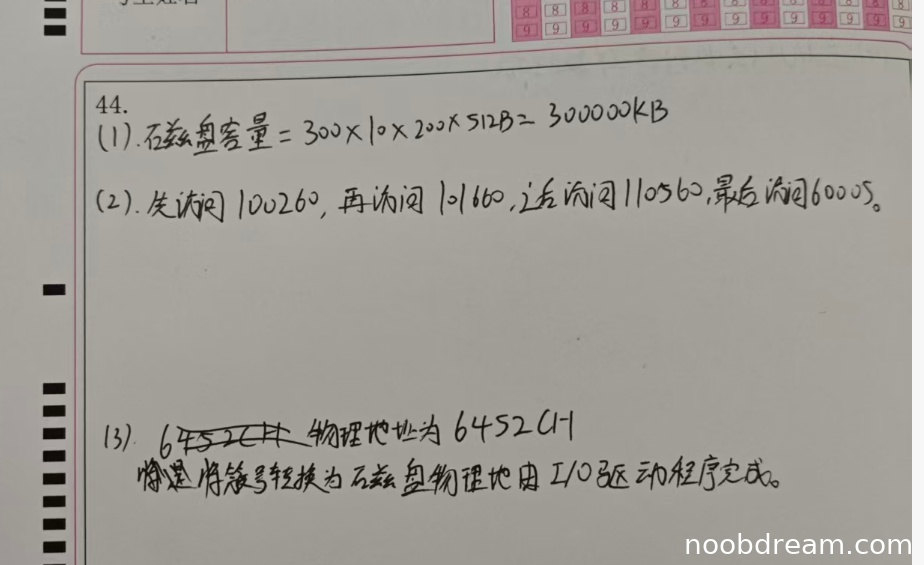 8 8 8 8 8 8 8 8 8 8 8 8 8
9 9 9 9 9 9 9 9 9 9 9 9 9
44.
(1).磁盘容量=300×10×200×512B=300000KB
(2).先访问100260,再访问101660,之后访问110560,最后访问60005。
(3). 物理地址为6452CH
将簇号转换为磁盘物理地由I/O驱动程序完成。
noobdream.com